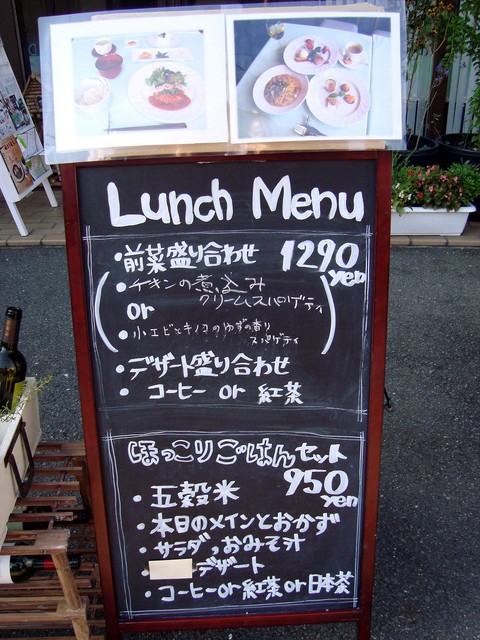 Lunch Menu
・前菜盛り合わせ 1290 yen
・チキンの煮込み
クリームスパゲティ
or
・小エビとキノコのゆずの香り
スパゲティ
・デザート盛り合わせ
・コーヒー or 紅茶
ほっこりごはんセット
950 yen
・五穀米
・本日のメインとおかず
・サラダ、おみそ汁
・デザート
・コーヒー or 紅茶 or 日本茶